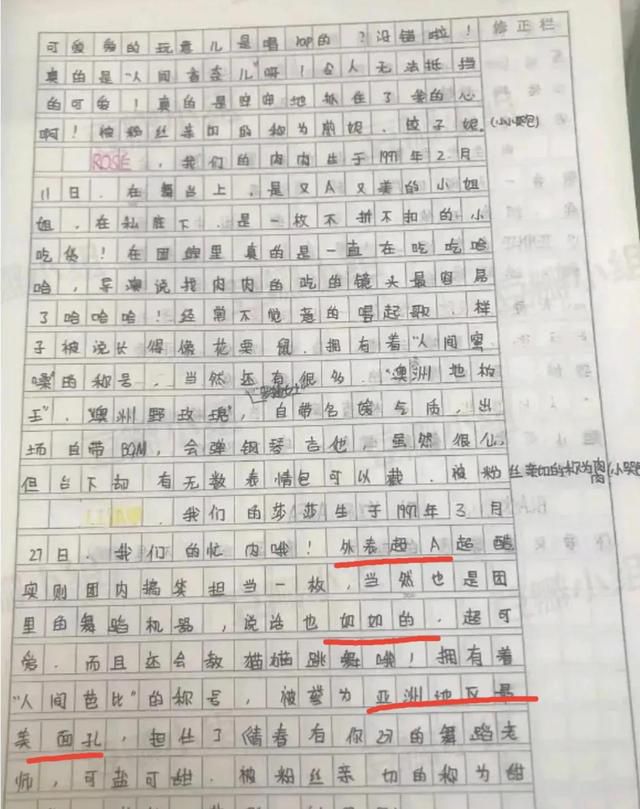 可爱爱的玩意儿是唱pop的？没错啦！
真的是"人间音弦儿"呀！令人无法抵挡
的可爱！真的是牢牢地抓住了我的心
啊！被粉丝亲切的称为前妮、饺子妮(小小哭包)
ROSÉ，我们的肉肉生于1997年2月
11日，在舞台上，是又A又美的小姐
姐，在私底下，是一枚不折不扣的小
吃货！在团综里真的是一直在吃吃哈
哈，导演说找肉肉的吃的镜头最容易
了哈哈哈！经常不觉意的唱起歌，样
子被说长得像花栗鼠，拥有着"人间蜜
嗓"的称号，当然还有很多，"澳洲地柏
玉"、"澳洲野玫瑰"，自带名媛气质，出
场自带BGM，会弹钢琴吉他，虽然很仙
但台下却有无数表情包可以截，被粉丝亲切的称为肉肉(小哭包
，我们的莎莎生于1997年3月
27日，我们的忙内哦！外表超A超酷
实则团内搞笑担当一枚，当然也是团
里的舞蹈机器，说话也奶奶的，超可
爱，而且还会教猫猫跳舞哦！拥有着
"人间芭比"的称号，被誉为亚洲地区最
美面孔，担任了《青春有你2》的舞蹈老
师，可盐可甜，被粉丝亲切的称为甜
修正栏